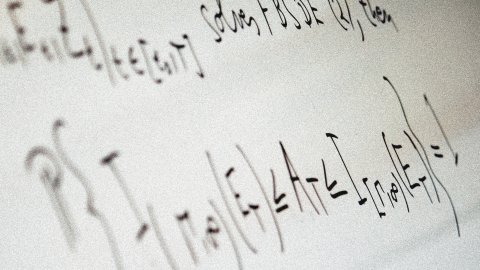 E_t, Z_t)_{t∈[t_0,T]} solves FBSDE (2), then
P{ I_{(Π,∞)}(E_T) ≤ A_T ≤ I_{[Π,∞)}(E_T) } = 1,